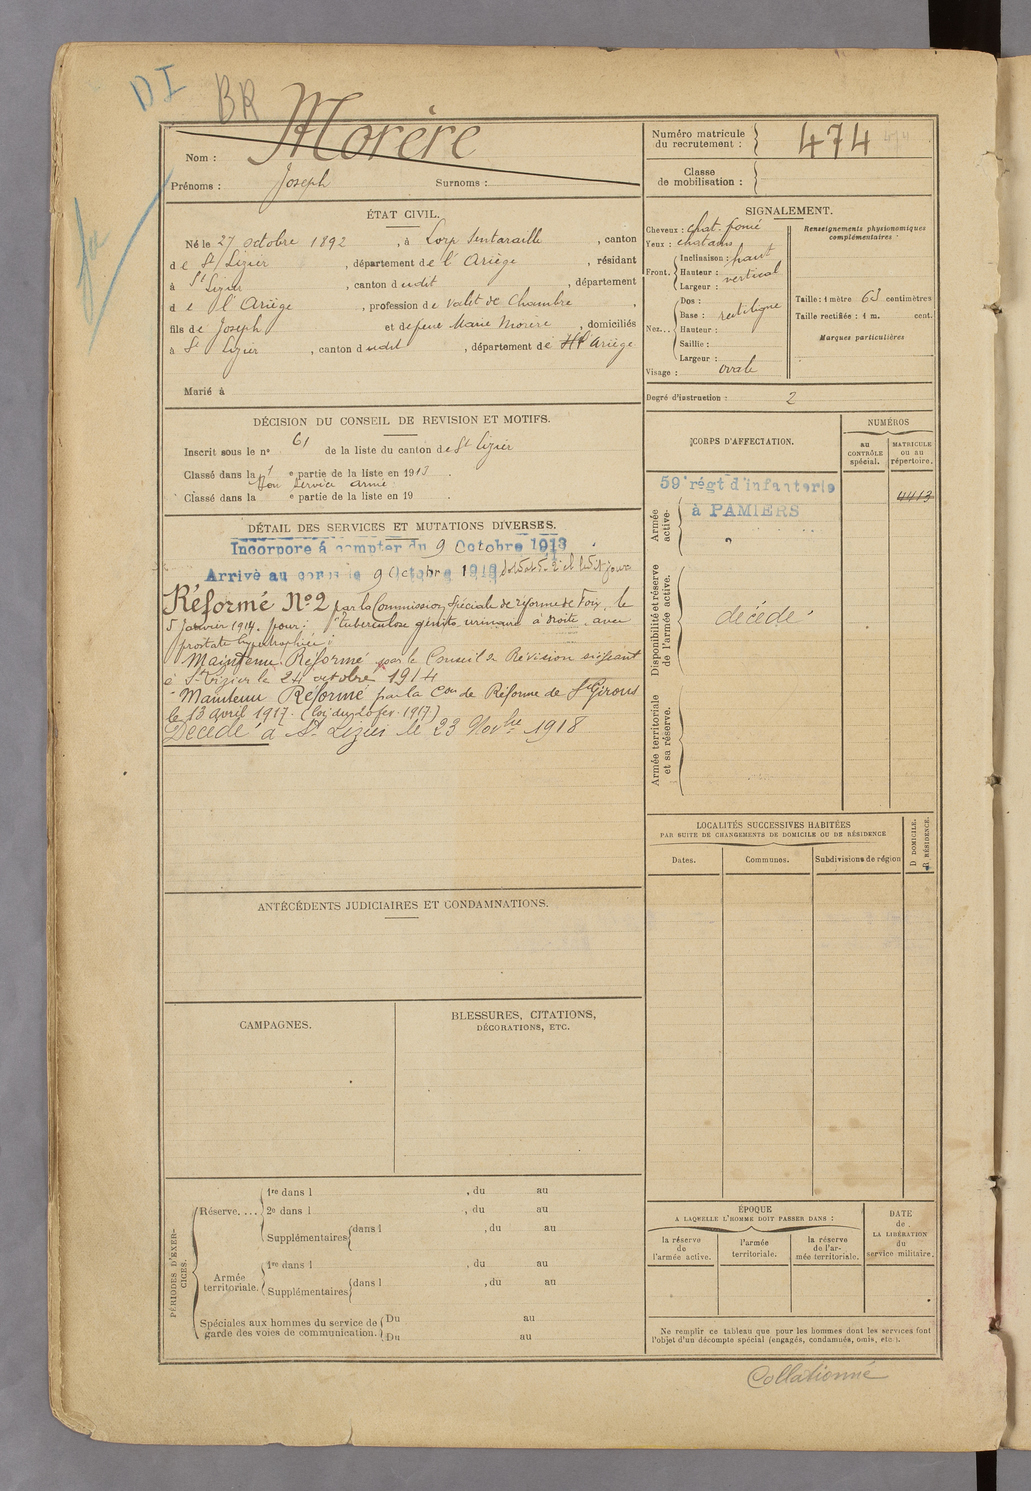 DI
BR
Nom : Morère
Prénoms : Joseph Surnoms :
Numéro matricule du recrutement : 474
Classe de mobilisation :
ÉTAT CIVIL.
Né le 27 octobre 1892, à Lorp Sentaraille, canton
de St Lizier, département de l'Ariège, résidant
à St Lizier, canton dudit, département
de l'Ariège, profession de valet de chambre,
fils de Joseph et de feue Marie Morère, domiciliés
à St Lizier, canton dudit, département de Ariège
Marié à
SIGNALEMENT.
Cheveux : chat. foncé
Yeux : chatains
Front. Inclinaison : haut
Hauteur : vertical
Largeur :
Nez... Dos :
Base : rectiligne
Hauteur :
Saillie :
Largeur :
Visage : ovale
Renseignements physionomiques complémentaires :
Taille : 1 mètre 63 centimètres
Taille rectifiée : 1 m. cent.
Marques particulières
Degré d'instruction : 2
DÉCISION DU CONSEIL DE REVISION ET MOTIFS.
Inscrit sous le n° 61 de la liste du canton de St Lizier
Classé dans la 1 e partie de la liste en 1913.
Bon Service armé
Classé dans la e partie de la liste en 19 .
DÉTAIL DES SERVICES ET MUTATIONS DIVERSES.
Incorporé à compter du 9 Octobre 1913
Arrivé au corps le 9 Octobre 1913, soldat de 2e cl ledit jour
Réformé N° 2 par la Commission Spéciale de réforme de Foix, le
5 Janvier 1914. pour : tuberculose génito urinaire à droite, avec
prostate hypertrophiée :
Maintenu Réformé par le Conseil de Révision siégeant
à St Lizier le 24 octobre 1914
Maintenu Réformé par la Con de Réforme de St Girons
le 13 avril 1917. (loi du 20 fev. 1917)
Décédé à St Lizier le 23 Novbre 1918
CORPS D'AFFECTATION.
NUMÉROS
au CONTRÔLE spécial.
MATRICULE ou au répertoire.
Armée active.
59e régt d'infanterie
à PAMIERS
4413
Disponibilité et réserve de l'armée active.
décédé
Armée territoriale et sa réserve.
LOCALITÉS SUCCESSIVES HABITÉES
PAR SUITE DE CHANGEMENTS DE DOMICILE OU DE RÉSIDENCE
Dates.
Communes.
Subdivisions de région
D DOMICILE.
R RÉSIDENCE.
ANTÉCÉDENTS JUDICIAIRES ET CONDAMNATIONS.
CAMPAGNES.
BLESSURES, CITATIONS,
DÉCORATIONS, ETC.
PÉRIODES D'EXERCICES.
Réserve.... 1re dans l , du au
2e dans l , du au
Supplémentaires dans l , du au
Armée territoriale. 1re dans l , du au
Supplémentaires dans l , du au
Spéciales aux hommes du service de garde des voies de communication. Du au
Du au
ÉPOQUE
A LAQUELLE L'HOMME DOIT PASSER DANS :
la réserve de l'armée active.
l'armée territoriale.
la réserve de l'armée territoriale.
DATE
de
LA LIBÉRATION
du
service militaire.
Ne remplir ce tableau que pour les hommes dont les services font
l'objet d'un décompte spécial (engagés, condamnés, omis, etc.).
Collationné